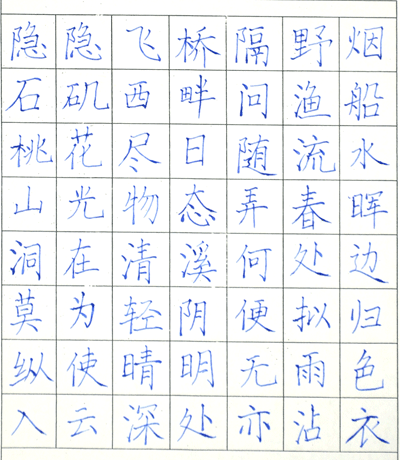 隐隐飞桥隔野烟
石矶西畔问渔船
桃花尽日随流水
山光物态弄春晖
洞在清溪何处边
莫为轻阴便拟归
纵使晴明无雨色
入云深处亦沾衣